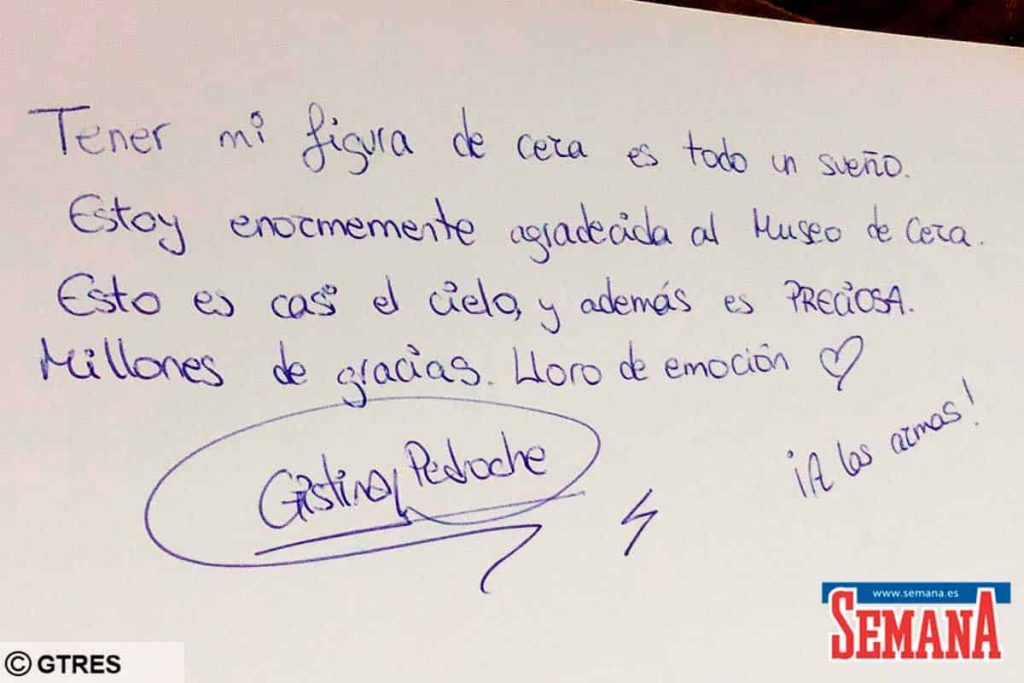 Tener mi figura de cera es todo un sueño.
Estoy enormemente agradecida al Museo de Cera.
Esto es casi el cielo, y además es PRECIOSA.
Millones de gracias. Lloro de emoción ♡
¡A las armas!
Cristina Pedroche
www.semana.es
SEMANA
© GTRES